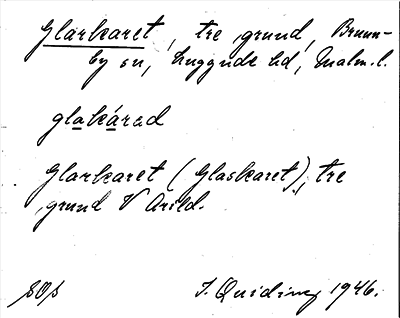 Glarkaret, tre grund, Brunn-
by sn, Luggude hd, Malm.l.
glakárad
Glarkaret (Glaskaret), tre
grund V Arild.
SOs
I. Quiding 1946.